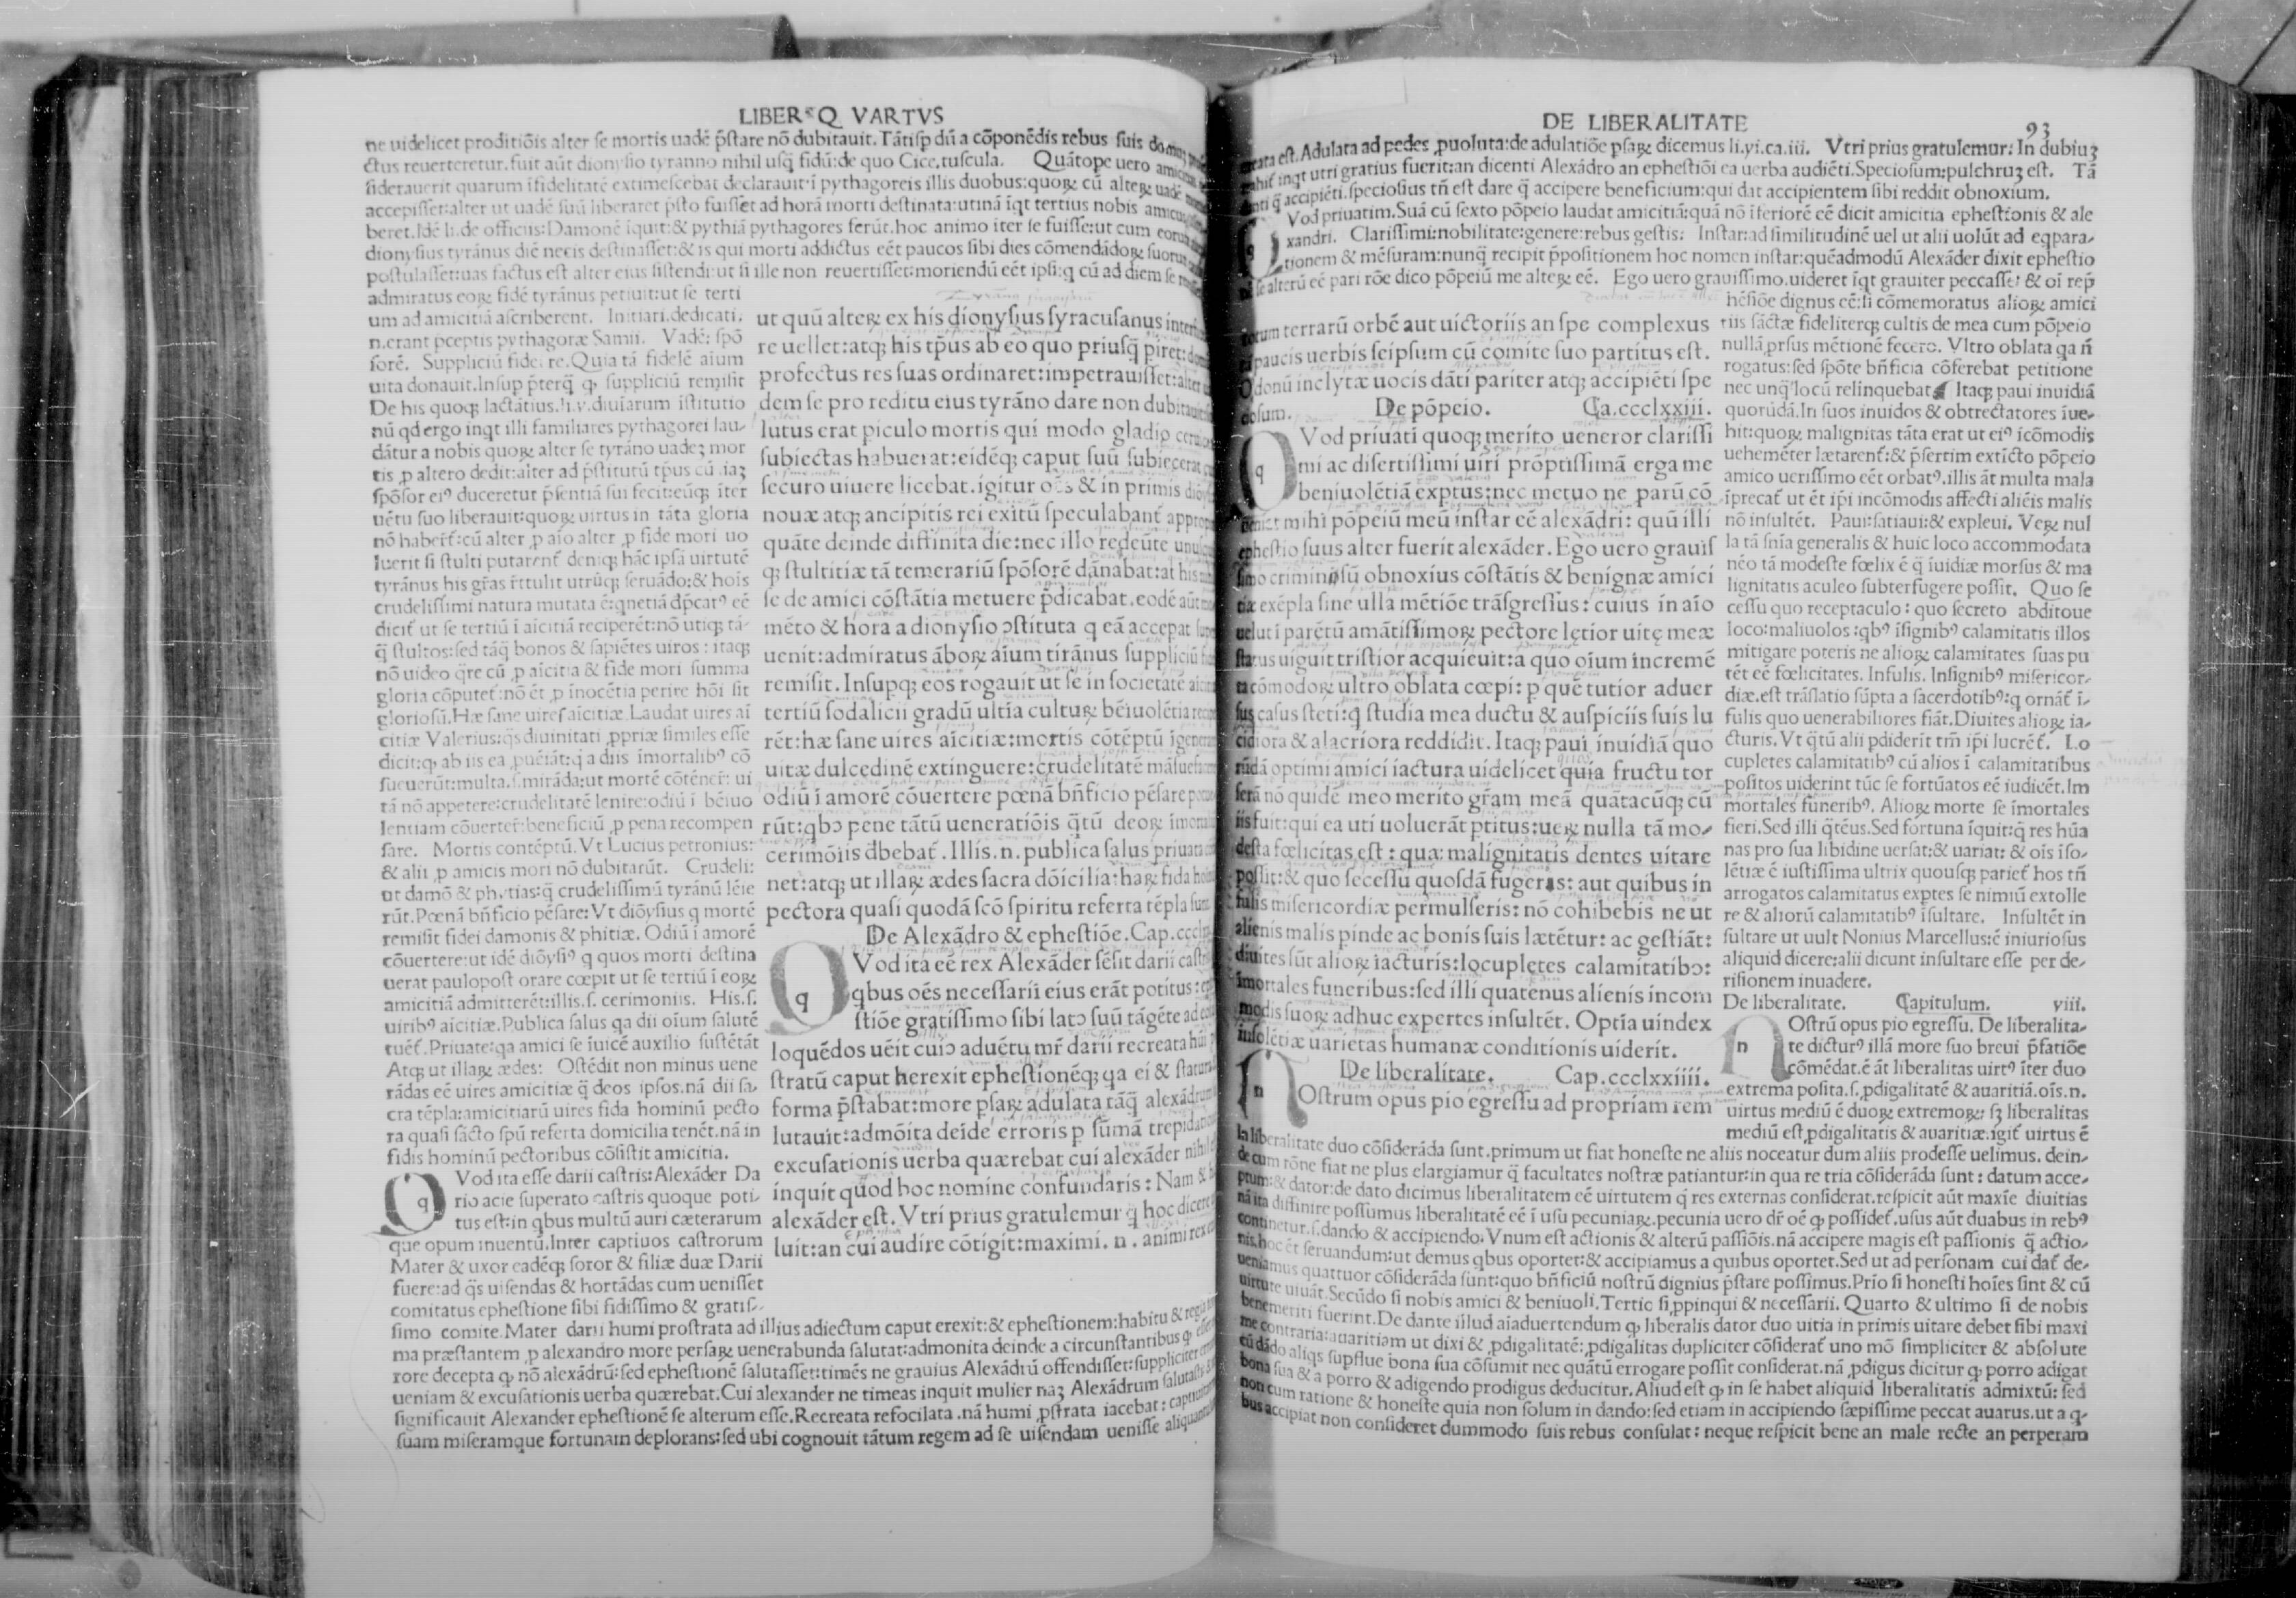 LIBER Q VARTVS
ne uidelicet proditiõis alter se mortis uadẽ p̃stare nõ dubitauit. Tãtisp dũ a cõponẽdis rebus suis
ctus reuerteretur. fuit aũt dionysio tyranno nihil usq̃ fidũ: de quo Cice. tuscula. Quãtope uero
siderauerit quarum ĩfidelitatẽ extimescebat declarauit ĩ pythagoreis illis duobus: quoꝝ cũ alteꝝ uadẽ
accepisset: alter ut uadẽ suũ liberaret p̃sto fuisset ad horã morti destinata: utinã ĩqt tertius nobis amicus
beret. Idẽ li. de officiis: Damonẽ ĩquit: & pythiã pythagores ferũt. hoc animo iter se fuisse: ut cum eorum
dionysius tyrãnus diẽ necis destinasset: & is qui morti addictus eẽt paucos sibi dies cõmendãdoꝝ suorum
postulasset: uas factus est alter eius sistendi: ut si ille non reuertisset: moriendũ eẽt ipsi: q cũ ad diem se
admiratus eoꝝ fidẽ tyrãnus petiuit: ut se terti
um ad amicitiã ascriberent. Initiari. dedicati.
n. erant pceptis pythagoræ Samii. Vadẽ: spõ
sorẽ. Suppliciũ fide. re. Quia tã fidelẽ aium
uita donauit. Insup p̃terq̃ ꝙ suppliciũ remisit
De his quoqꝫ lactãtius. li. v. diuiarum istitutio
nũ qd ergo inqt illi familiares pythagorei lau-
dãtur a nobis quoꝝ alter se tyrãno uadeꝫ mor
tis ꝓ altero dedit: alter ad p̃stitutũ tp̃us cũ iaꝫ
spõsor eiꝰ duceretur p̃sentiã sui fecit: eũqꝫ iter
uẽtu suo liberauit: quoꝝ uirtus in tãta gloria
nõ haberet̃: cũ alter ꝓ aĩo alter ꝓ fide mori uo
luerit si stulti putarent̃ deniqꝫ hãc ipsã uirtutẽ
tyrãnus his gr̃as r̃ttulit utrũqꝫ seruãdo: & hoĩs
crudelissimi natura mutata ẽ: qnetiã dp̃catꝰ eẽ
dicit̃ ut se tertiũ ĩ aicitiã reciperẽt: nõ utiqꝫ tã-
q̃ stultos: sed tãq̃ bonos & sapiẽtes uiros: itaqꝫ
nõ uideo q̃re cũ ꝓ aicitia & fide mori summa
gloria cõputet̃: nõ ẽt ꝓ inocẽtia perire hõi sit
gloriosũ. Hæ sane uires aicitiæ. Laudat uires ai
citiæ Valerius: q̃s diuinitati ꝓpriæ similes esse
dicit: ꝙ ab iis ea ꝓuẽiãt: q̃ a diis imortalibꝰ cõ
sueuerũt: multa. s. mirãda: ut mortẽ cõtẽner̃: ui
tã nõ appetere: crudelitatẽ lenire: odiũ ĩ bẽiuo
lentiam cõuerter̃: beneficiũ ꝓ pena recompen
sare. Mortis contẽptũ. Vt Lucius petronius:
& alii ꝓ amicis mori nõ dubitarũt. Crudeli:
ut damõ & phytias: q̃ crudelissimũ tyrãnũ lẽie
rũt. Pœnã bñficio pẽsare: Vt diõysius q mortẽ
remisit fidei damonis & phitiæ. Odiũ ĩ amorẽ
cõuertere: ut idẽ diõysiꝰ q quos morti destina
uerat paulopost orare cœpit ut se tertiũ ĩ eoꝝ
amicitiã admitterẽt: illis. s. cerimoniis. His. s.
uiribꝰ aicitiæ. Publica salus qa dii oĩum salutẽ
tuẽt̃. Priuate: qa amici se ĩuicẽ auxilio sustẽtãt
Atqꝫ ut illaꝝ ædes: Ostẽdit non minus uene
rãdas eẽ uires amicitiæ q̃ deos ipsos. nã dii sa-
cra tẽpla: amicitiarũ uires fida hominũ pecto
ra quasi sãcto spũ referta domicilia tenẽt. nã in
fidis hominũ pectoribus cõsistit amicitia.
Q Vod ita esse darii castris: Alexãder Da
rio acie superato castris quoque poti-
tus est: in qbus multũ auri cæterarum
que opum inuentũ. Inter captiuos castrorum
Mater & uxor eadẽqꝫ soror & filiæ duæ Darii
fuere: ad q̃s uisendas & hortãdas cum uenisset
comitatus ephestione sibi fidissimo & gratis-
ut quũ alteꝝ ex his dionysius syracusanus
re uellet: atqꝫ his tp̃us ab eo quo priusq̃ piret:
profectus res suas ordinaret: impetrauisset: alter
dem se pro reditu eius tyrãno dare non dubitauit
lutus erat piculo mortis qui modo gladio
subiectas habuerat: eidẽqꝫ caput suũ subiecerat
securo uiuere licebat. igitur oẽs & in primis
nouæ atqꝫ ancipitis rei exitũ speculabant̃
quãte deinde diffinita die: nec illo redeũte
qꝫ stultitiæ tã temerariũ spõsorẽ dãnabat: at his
se de amici cõstãtia metuere p̃dicabat. eodẽ aũt
mẽto & hora a dionysio ↄstituta q eã accepat
uenit: admiratus ãboꝝ aĩum tirãnus suppliciũ
remisit. Insupqꝫ eos rogauit ut se in societatẽ
tertiũ sodalicii gradũ ultĩa cultuꝝ bẽiuolẽtia
rẽt: hæ sane uires aicitiæ: mortis cõtẽptũ
uitæ dulcedinẽ extinguere: crudelitatẽ
odiũ ĩ amorẽ cõuertere pœnã bñficio pẽsare
rũt: qbↄ pene tãtũ ueneratiõis q̃tũ deoꝝ
cerimõiis dẽbebat̃. Illis. n. publica salus priuata
net: atqꝫ ut illaꝝ ædes sacra dõicilia: haꝝ fida
pectora quasi quodã scõ spiritu referta tẽpla
De Alexãdro & ephestiõe. Cap.
Q Vod ita eẽ rex Alexãder sẽsit darii
qbus oẽs necessarii eius erãt potitus:
stiõe gratissimo sibi latↄ suũ tãgẽte ad
loquẽdos uẽit cuiↄ aduẽtu mr̃ darii recreata
stratũ caput herexit ephestionẽqꝫ qa ei &
forma p̃stabat: more psaꝝ adulata tãq̃
lutauit: admõita deĩde erroris p sũmã
excusationis uerba quærebat cui alexãder
inquit quod hoc nomine confundaris: Nam &
alexãder est. Vtri prius gratulemur q̃ hoc
luit: an cui audire cõtigit: maximi. n. animi rex
simo comite. Mater darii humi prostrata ad illius adiectum caput erexit: & ephestionem: habitu &
ma præstantem ꝓ alexandro more persaꝝ uenerabunda salutat: admonita deinde a circunstantibus ꝙ
rore decepta ꝙ nõ alexãdrũ: sed ephestionẽ salutasset: timẽs ne grauius Alexãdrũ offendisset: suppliciter
ueniam & excusationis uerba quærebat. Cui alexander ne timeas inquit mulier naꝫ Alexãdrum
significauit Alexander ephestionẽ se alterum esse. Recreata refocilata. nã humi ꝓstrata iacebat:
suam miseramque fortunam deplorans: sed ubi cognouit tãtum regem ad se uisendam uenisse
DE LIBERALITATE 93
est. Adulata ad pedes ꝓuoluta: de adulatiõe psaꝝ dicemus li. yi. ca. iii. Vtri prius gratulemur: In dubiuꝫ
inqt utri gratius fuerit: an dicenti Alexãdro an ephestiõi ea uerba audiẽti. Speciosum: pulchruꝫ est. Tã
q̃ accipiẽti. speciosius tñ est dare q̃ accipere beneficium: qui dat accipientem sibi reddit obnoxium.
Vod priuatim. Suã cũ sexto põpeio laudat amicitiã: quã nõ ĩferiorẽ eẽ dicit amicitia ephestionis & ale
xandri. Clarissimi: nobilitate: genere: rebus gestis: Instar: ad similitudinẽ uel ut alii uolũt ad eqpara-
tionem & mẽsuram: nunq̃ recipit p̃positionem hoc nomen instar: quẽadmodũ Alexãder dixit ephestio
se alterũ eẽ pari rõe dico põpeiũ me alteꝝ eẽ. Ego uero grauissimo. uideret ĩqt grauiter peccasse: & oi rep̃
hẽsiõe dignus eẽ: si cõmemoratus alioꝝ amici
tiis sãctæ fideliterqꝫ cultis de mea cum põpeio
nullã prsus mẽtionẽ fecero. Vltro oblata qa ñ
rogatus: sed spõte bñficia cõferebat petitione
nec unq̃ locũ relinquebat Itaqꝫ paui inuidiã
quorũdã. In suos inuidos & obtrectatores ĩue-
hit: quoꝝ malignitas tãta erat ut eiꝰ ĩcõmodis
uehemẽter lætarent̃: & p̃sertim extĩcto põpeio
amico uerissimo eẽt orbatꝰ. illis ãt multa mala
ĩprecat̃ ut ẽt ip̃i incõmodis affecti aliẽis malis
nõ insultẽt. Paui: satiaui: & expleui. Veꝝ nul
la tã sñia generalis & huic loco accommodata
nẽo tã modeste fœlix ẽ q̃ ĩuidiæ morsus & ma
lignitatis aculeo subterfugere possit. Quo se
cessu quo receptaculo: quo secreto abditoue
loco: maliuolos: qbꝰ ĩsignibꝰ calamitatis illos
mitigare poteris ne alioꝝ calamitates suas pu
tẽt eẽ fœlicitates. Insulis. Insignibꝰ misericor-
diæ. est trãslatio sũpta a sacerdotibꝰ: q ornãt̃ ĩ-
fulis quo uenerabiliores fiãt. Diuites alioꝝ ia-
cturis. Vt q̃tũ alii pdiderit tm̃ ip̃i lucrẽt̃. Lo
cupletes calamitatibꝰ cũ alios ĩ calamitatibus
positos uiderint tũc se fortũatos eẽ iudicẽt. Im
mortales funeribꝰ. Alioꝝ morte se ĩmortales
fieri. Sed illi q̃tẽus. Sed fortuna ĩquit: q̃ res hũa
nas pro sua libidine uersat: & uariat: & oĩs ĩso-
lẽtiæ ẽ iustissima ultrix quousqꝫ pariet̃ hos tñ
arrogatos calamitatus exptes se nimiũ extolle
re & aliorũ calamitatibꝰ ĩsultare. Insultẽt in
sultare ut uult Nonius Marcellus: ẽ iniuriosus
aliquid dicere: alii dicunt insultare esse per de-
risionem inuadere.
De liberalitate. Capitulum. yiii.
n Ostrũ opus pio egressu. De liberalita-
te dicturꝰ illã more suo breui p̃fatiõe
cõmẽdat. ẽ ãt liberalitas uirtꝰ ĩter duo
extrema posita. s. ꝓdigalitatẽ & auaritiã. oĩs. n.
uirtus mediũ ẽ duoꝝ extremoꝝ: sꝫ liberalitas
mediũ est ꝓdigalitatis & auaritiæ. igit̃ uirtus ẽ
terrarũ orbẽ aut uictoriis an spe complexus
paucis uerbis seipsum cũ comite suo partitus est.
O donũ inclytæ uocis dãti pariter atqꝫ accipiẽti spe
ciosum. De põpeio. Ca. ccclxxiii.
Q Vod priuati quoqꝫ merito ueneror clarissi
mi ac disertissimi uiri prõptissimã erga me
beniuolẽtiã exptus: nec metuo ne parũ cõ
ueniat mihi põpeiũ meũ instar eẽ alexãdri: quũ illi
ephestio suus alter fuerit alexãder. Ego uero grauis
simo criminosũ obnoxius cõstãtis & benignæ amici
tiæ exẽpla sine ulla mẽtiõe trãsgressus: cuius in aio
uelut ĩ parẽtũ amãtissimoꝝ pectore lętior uitę meæ
status uiguit tristior acquieuit: a quo oĩum incremẽ
ta cõmodoꝝ ultro oblata cœpi: p quẽ tutior aduer
sus casus steti: q̃ studia mea ductu & auspiciis suis lu
cidiora & alacriora reddidit. Itaqꝫ paui inuidiã quo
rũdã optimi amici iactura uidelicet quia fructu tor
serã nõ quidẽ meo merito gr̃am meã quãtacũqꝫ cũ
iis fuit: qui ea uti uoluerãt ptitus: ueꝝ nulla tã mo-
desta fœlicitas est: quæ malignitatis dentes uitare
possit: & quo secessu quosdã fugeris: aut quibus in
fulis misericordiæ permulseris: nõ cohibebis ne ut
alienis malis pinde ac bonis suis lætẽtur: ac gestiãt:
diuites sũt alioꝝ iacturis: locupletes calamitatibↄ:
ĩmortales funeribus: sed illi quatenus alienis incom
modis suoꝝ adhuc expertes insultẽt. Optĩa uindex
ĩnsolẽtiæ uarietas humanæ conditionis uiderit.
De liberalitate. Cap. ccclxxiiii.
n Ostrum opus pio egressu ad propriam rem
la liberalitate duo cõsiderãda sunt. primum ut fiat honeste ne aliis noceatur dum aliis prodesse uelimus. dein-
de cum rõne fiat ne plus elargiamur q̃ facultates nostræ patiantur: in qua re tria cõsiderãda sunt: datum acce-
ptum: & dator: de dato dicimus liberalitatem eẽ uirtutem q̃ res externas considerat. respicit aũt maxĩe diuitias
nã ita diffinire possumus liberalitatẽ eẽ ĩ usu pecuniaꝝ. pecunia uero dr̃ oẽ ꝙ possidet̃. usus aũt duabus in rebꝰ
continetur. s. dando & accipiendo. Vnum est actionis & alterũ passiõis. nã accipere magis est passionis q̃ actio-
nis. hoc ẽt seruandum: ut demus qbus oportet: & accipiamus a quibus oportet. Sed ut ad personam cui dat̃ de-
ueniamus quattuor cõsiderãda sunt: quo bñficiũ nostrũ dignius p̃stare possimus. Prĩo si honesti hoĩes sint & cũ
uirtute uiuãt. Secũdo si nobis amici & beniuoli. Tertio si ꝓpinqui & necessarii. Quarto & ultimo si de nobis
benemeriti fuerint. De dante illud aĩaduertendum ꝙ liberalis dator duo uitia in primis uitare debet sibi maxi
me contraria: auaritiam ut dixi & ꝓdigalitatẽ: ꝓdigalitas dupliciter cõsiderat̃ uno mõ simpliciter & absolute
cũ dãdo aliqs supflue bona sua cõsumit nec quãtũ errogare possit considerat. nã ꝓdigus dicitur ꝙ porro adigat
bona sua & a porro & adigendo prodigus deducitur. Aliud est ꝙ in se habet aliquid liberalitatis admixtũ: sed
non cum ratione & honeste quia non solum in dando: sed etiam in accipiendo sæpissime peccat auarus. ut a q-
bus accipiat non consideret dummodo suis rebus consulat: neque respicit bene an male recte an perperam